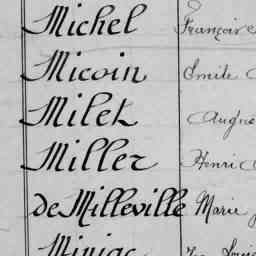 Michel François
Micoin Emile
Milek Augus
Miller Henri
de Milleville Marie
Miniac Louis